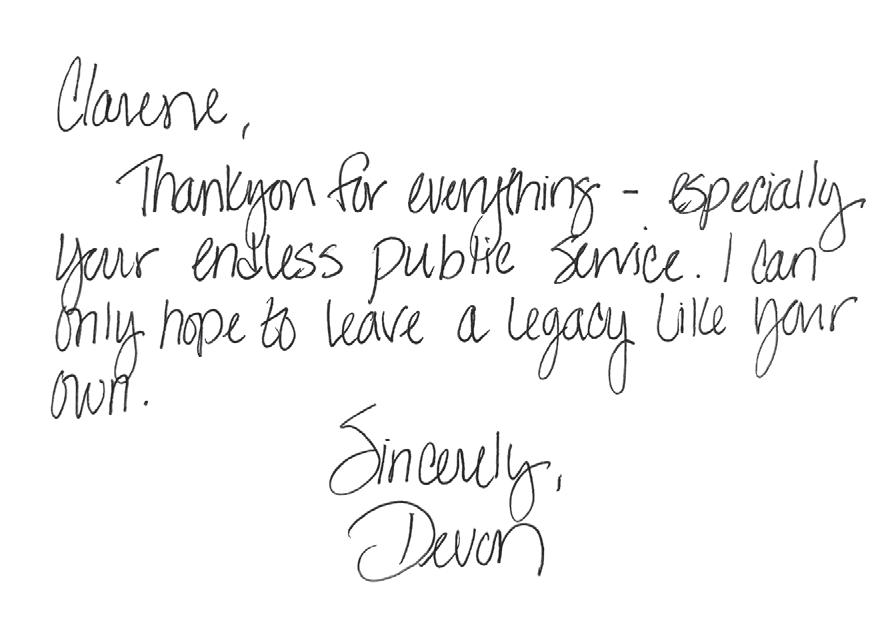 Clarene,
Thank you for everything - especially
your endless public service. I can
only hope to leave a legacy like your
own.
Sincerely,
Devon